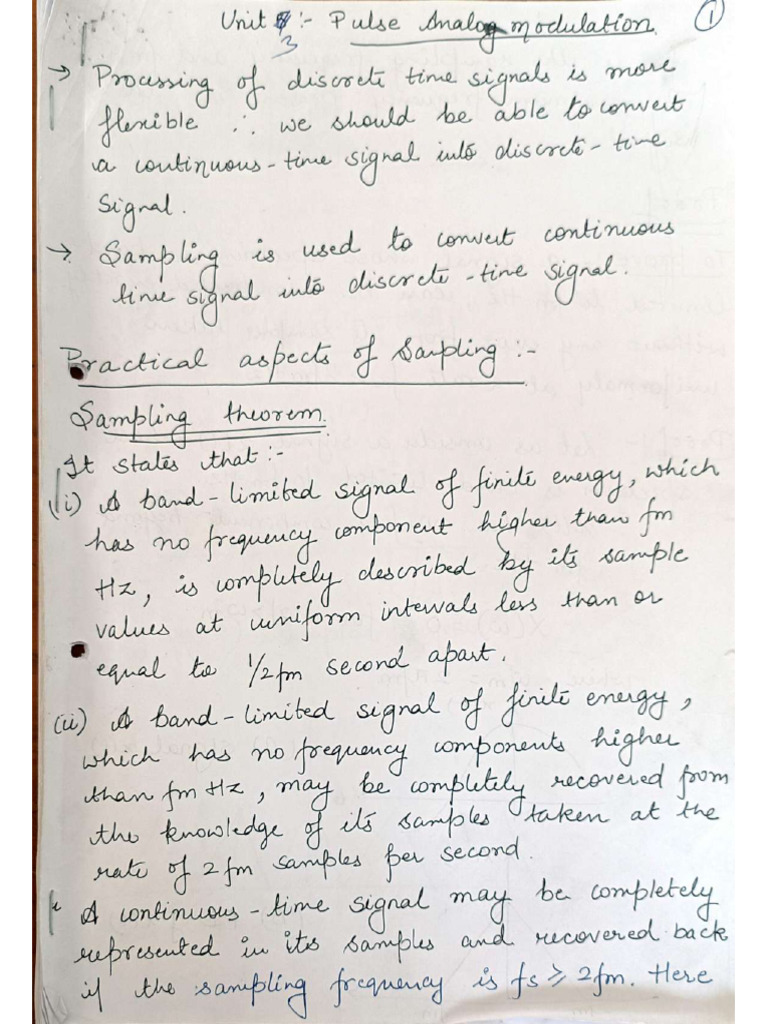 Unit 3 :- Pulse Analog modulation. 1
→ Processing of discrete time signals is more
flexible ∴ we should be able to convert
a continuous-time signal into discrete-time
signal.
→ Sampling is used to convert continuous
time signal into discrete-time signal.
Practical aspects of Sampling :-
Sampling theorem.
It states that :-
(i) A band-limited signal of finite energy, which
has no frequency component higher than fm
Hz, is completely described by its sample
values at uniform intervals less than or
equal to 1/2fm second apart.
(ii) A band-limited signal of finite energy,
which has no frequency components higher
than fm Hz, may be completely recovered from
the knowledge of its samples taken at the
rate of 2fm samples per second.
A continuous-time signal may be completely
represented in its samples and recovered back
if the sampling frequency is fs ≥ 2fm. Here